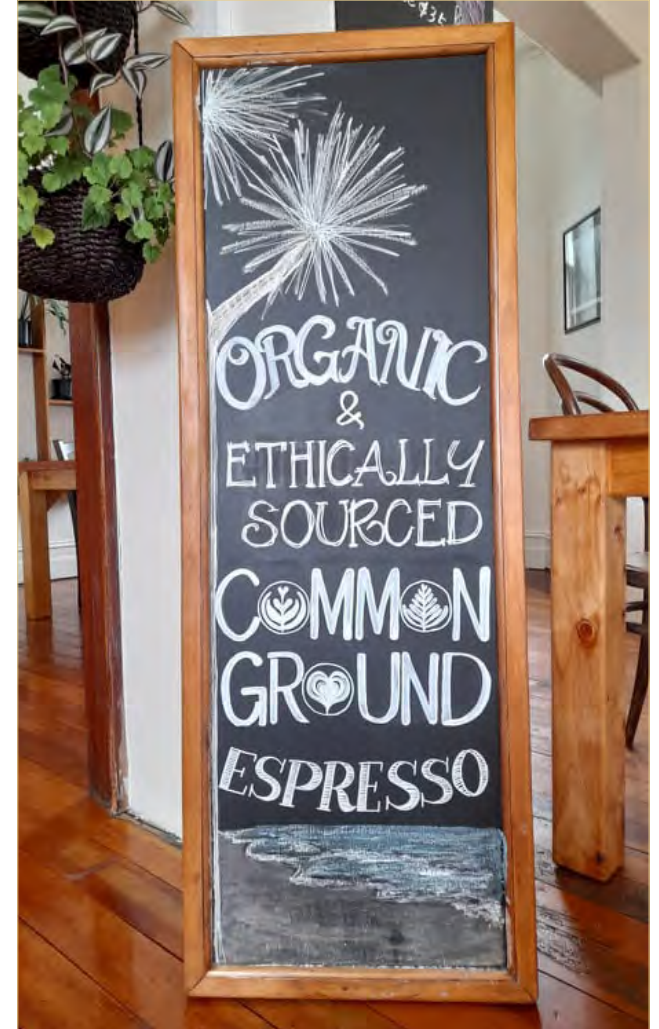 ORGANIC
&
ETHICALLY
SOURCED
COMMON
GROUND
ESPRESSO